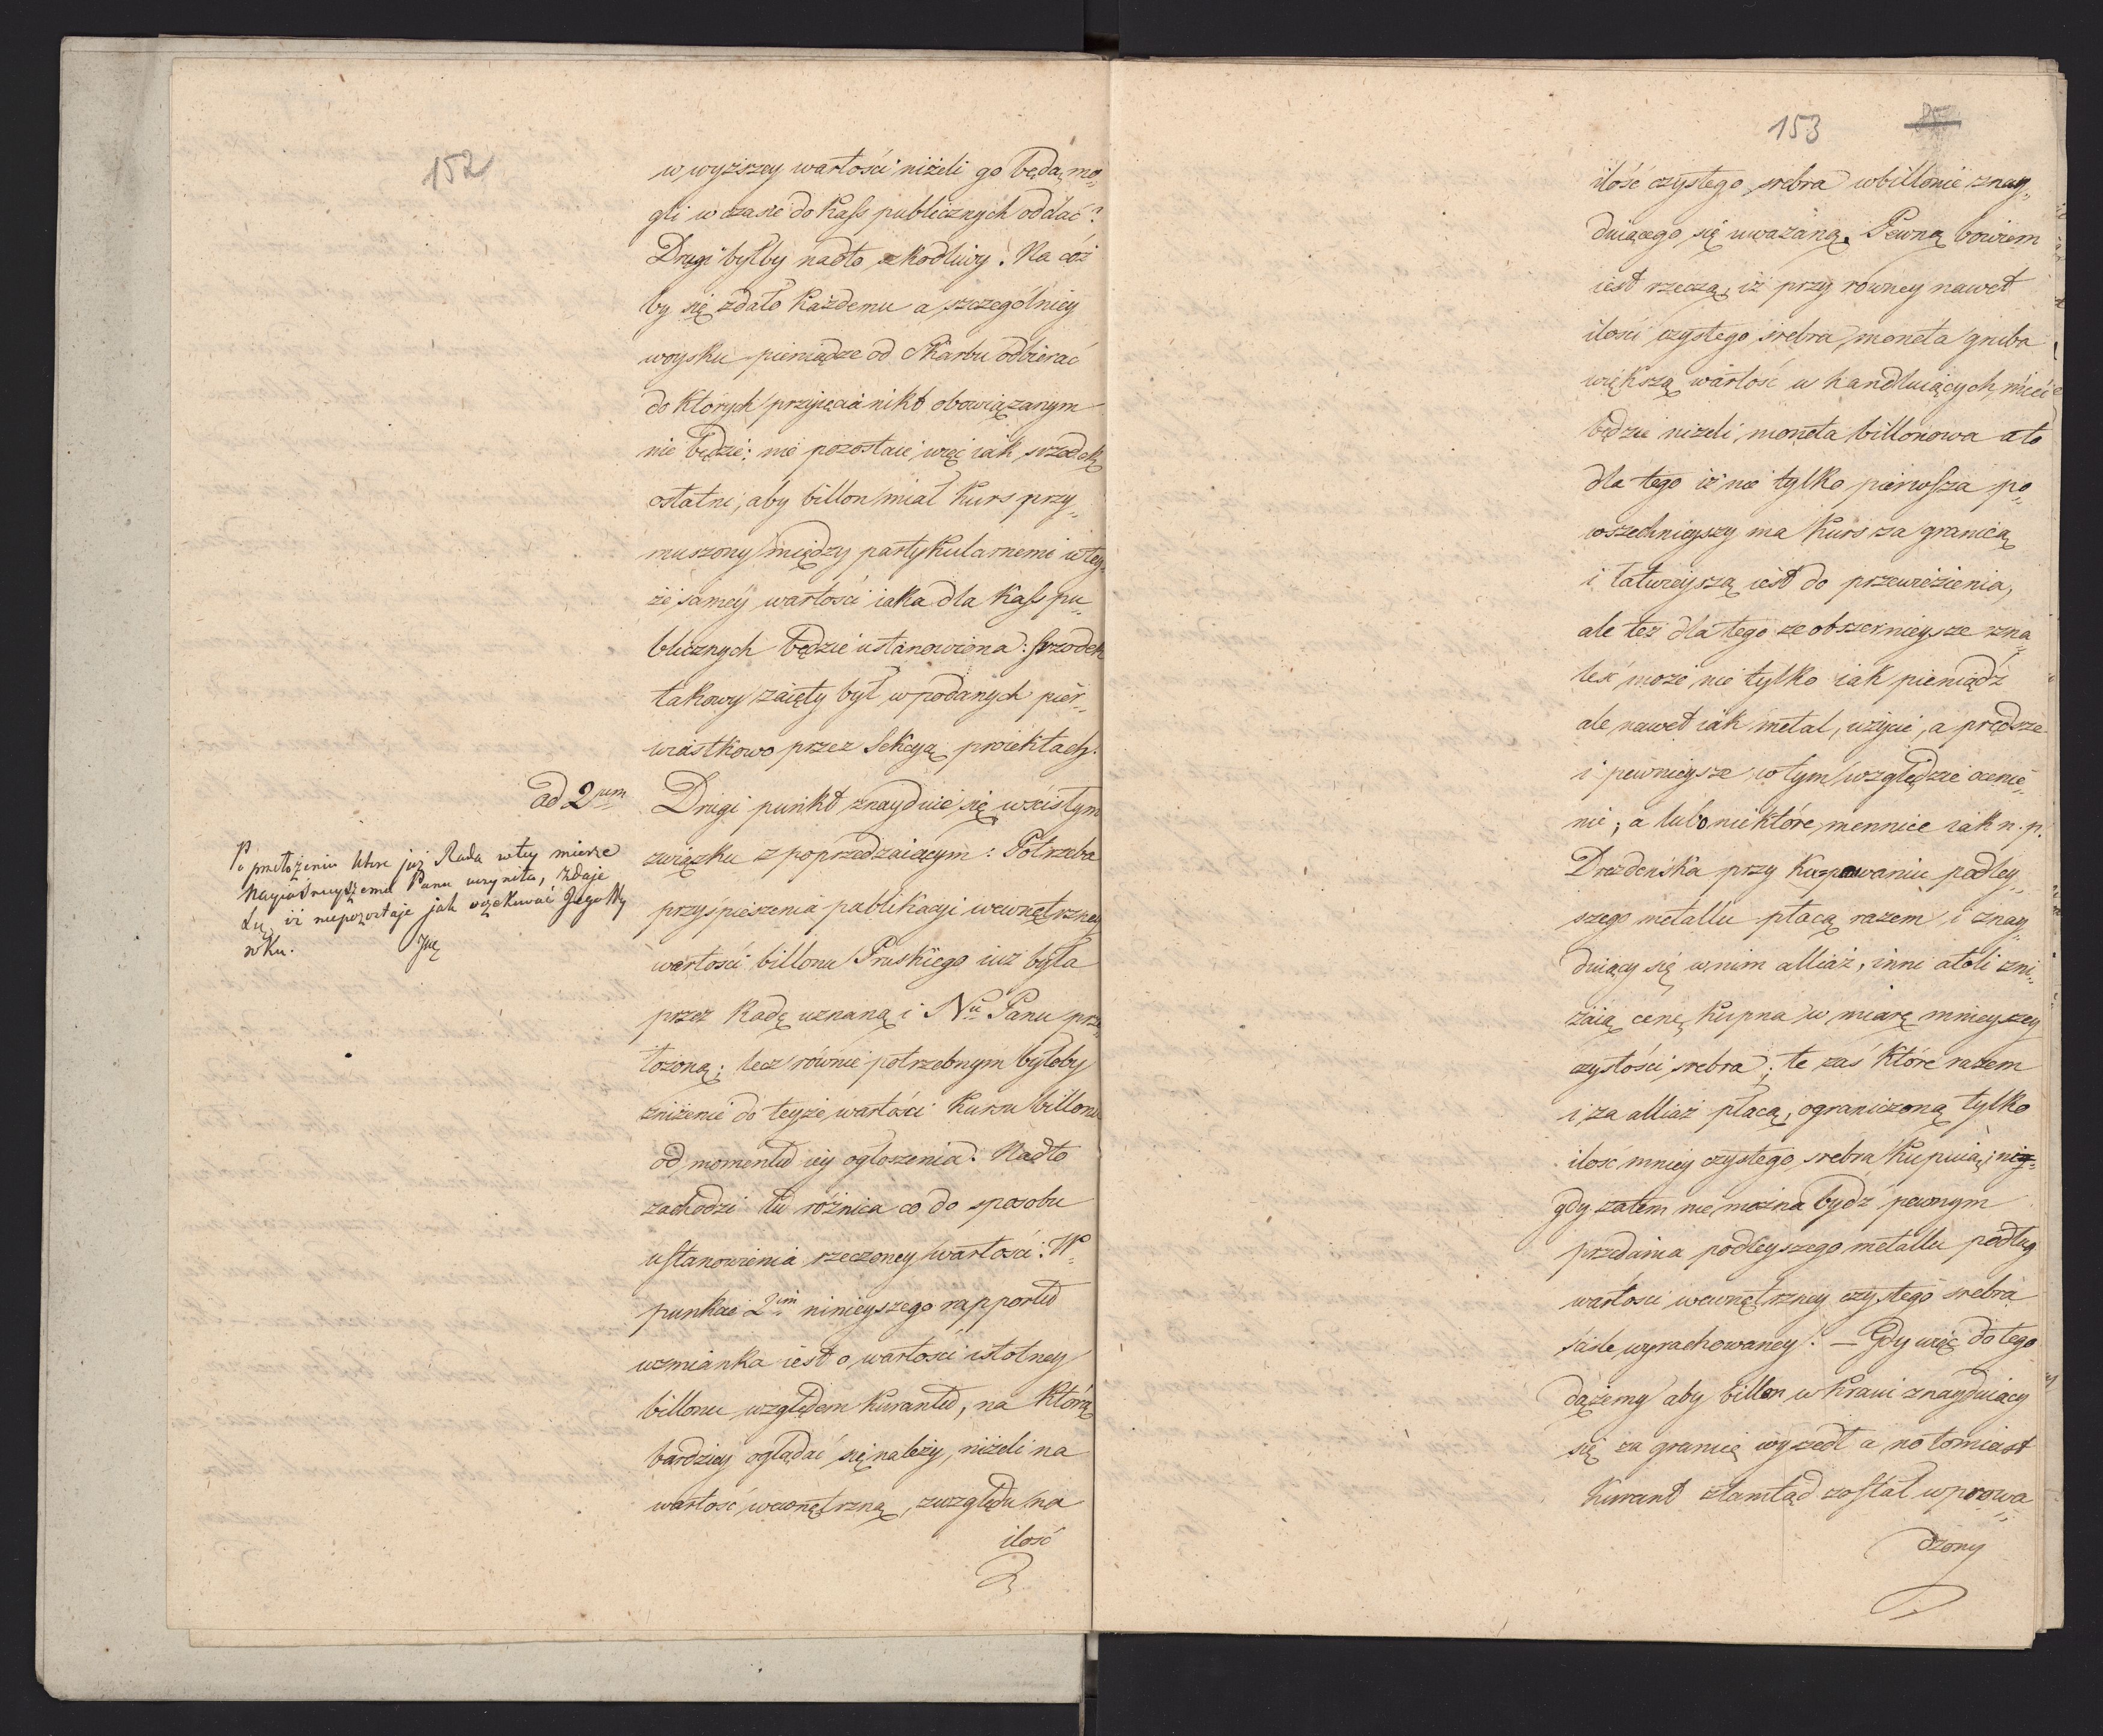 152
w wyższey wartości niżeli go będą mo„
gli w czasie do Kass publicznych oddać?
Drugi byłby nadto szkodliwy: Na cóż
by się zdało Każdemu a szczególniey
woysku pieniądze od Skarbu odbierać
do Których przyięcia nikt obowiązanym
nie będzie: nie pozostaie więc iak srzodek
ostatni, aby billon miał Kurs przy„
muszony między partykularnemi w tey„
że samey wartości iaka dla Kass pu„
blicznych będzie ustanowiona: srzodek
takowy zaięty był w podanych pier„
wiastkowo przez Sekcyą proiektach.
ad 2um Drugi punkt znayduie się w scisłym
związku z poprzedzaiącym: Potrzeba
przyśpieszenia publikacyi wewnętrzney
wartości billonu Pruskiego iuż była
przez Radę uznaną i Nu Panu prze„
łożoną; lecz równie potrzebnym byłoby
zniżenie do teyże wartości Kursu billonu
od momentu iey ogłoszenia. Nadto
zachodzi tu różnica co do sposobu
ustanowienia rzeczoney wartości. W„
punkcie 2im ninieyszego rapportu
wzmianka iest o wartości istotney
billonu względem Kurantu, na Którą
bardziey oglądać się należy, niżeli na
wartość wewnętrzną, zwzględu na
ilość
Po przełożeniu które już Rada w tey mierze
Nayiaśnieyszemu Panu uczyniła, zdaje
się, iż niepozostaje jak oczekiwać Jego Wy
roku.
153
ilość czystego srebra w billonie znay„
duiącego się uważaną. Pewną bowiem
iest rzeczą, iż przy równey nawet
ilości czystego srebra, moneta gruba
większą wartość u handluiących mieć
będzie niżeli moneta billonowa a to
dla tego iż nie tylko pierwsza po„
wszechnieyszy ma Kurs za granicą
i łatwieyszą iest do przewiezienia,
ale też dla tego że obszernieysze zna„
leść może nie tylko iak pieniądź
ale nawet iak metal, użycie, a prędsze
i pewnieysze w tym względzie cenie„
nie; a lubo niektóre mennice iak n. p.
Drezdeńska przy Kupowaniu podley„
szego metallu płacą razem i znay„
duiący się w nim alliaż, inni atoli zni„
żaią cenę Kupna w miarę mnieyszey
czystości srebra; te zaś Które razem
i za alliaż płacą, ograniczoną tylko
ilość mniey czystego srebra Kupuią; nig„
gdy zatem nie można bydź pewnym
przedania podleyszego metallu podług
wartości wewnętrzney czystego srebra
ściśle wyrachowaney. — Gdy więc do tego
dążemy aby billon w Kraiu znayduiący
się za granicę wyszedł a natomiast
Kurant ztamtąd został wprowa„
dzony